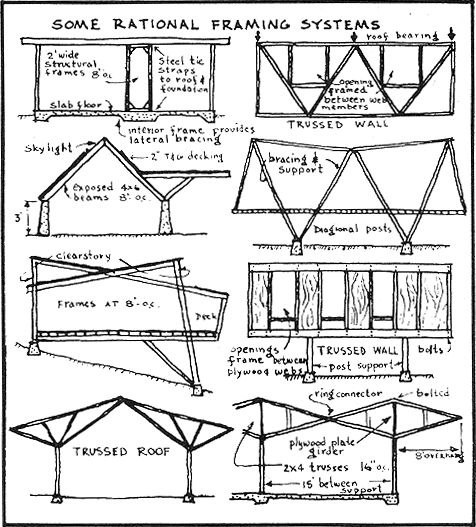 SOME RATIONAL FRAMING SYSTEMS
2' wide
structural
frames 8' o.c.
Steel tie
straps
to roof &
foundation
slab floor
interior frame provides
lateral bracing
roof bearing
opening
framed
between web
members
TRUSSED WALL
skylight
2" T&G decking
exposed 4x6
beams 8' o.c.
3'
bracing &
support
Diagonal posts
clearstory
FRAMES AT 8'-o.c.
Deck
openings
frame between
plywood webs
TRUSSED WALL
post support
bolts
TRUSSED ROOF
ring connector
bolted
plywood plate
girder
2x4 trusses 16" oc.
15' between
support
8' overhang